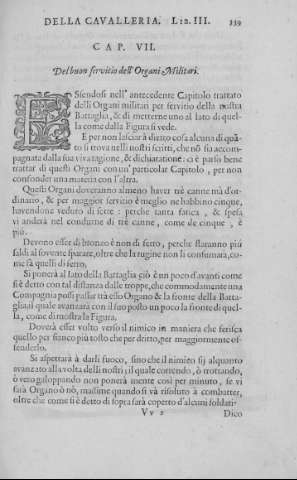 DELLA CAVALLERIA. LIB. III. 339
CAP. VII.
Del buon servitio dell'Organi Militari.
ESsendosi nell'antecedente Capitolo trattato
delli Organi militari per servitio della nostra
Battaglia, & di metterne uno al lato di quel-
la come dalla Figura si vede.
E per non lasciar à dietro cosa alcuna di quã-
to si trova nelli nostri scritti, che nõ sia accom-
pagnata dalla sua viva ragione, & dichiaratione: ci è parso bene
trattar di questi Organi con un' particolar Capitolo, per non
confonder una materia con l'altra.
Questi Organi doveranno almeno haver trè canne ma d'or-
dinario, & per maggior servitio è meglio ne habbino cinque,
havendone veduto di sette: perche tanta fatica, & spesa
vi anderà nel condurne di trè canne, come de cinque, è
più.
Devono esser di bronzo è non di ferro, perche staranno più
saldi al sovente sparare, oltre che la rugine non li consumarà, co-
me fà quelli di ferro.
Si ponerà al lato della Battaglia ciò è un poco d'avanti come
si è detto con tal distanza dalle troppe, che commodamente una
Compagnia possi passar trà esso Organo & la fronte della Batta-
glia, il quale avanzarà con il suo posto un poco la fronte di quel-
la, come di mostra la Figura.
Doverà esser volto verso il nimico in maniera che ferisca
quello per fianco più tosto che per dritto, per maggiormente of-
fenderlo.
Si aspettarà à darli fuoco, sino che il nimico sij alquanto
avanzato alla volta delli nostri; il quale correndo, ò trottando,
ò vero galoppando non ponerà mente così per minuto, se vi
sarà Organo ò nò, massime quando si và risoluto à combatter,
oltre che come si è detto di sopra sarà coperto d'alcuni soldati.
Vv 2 Dico